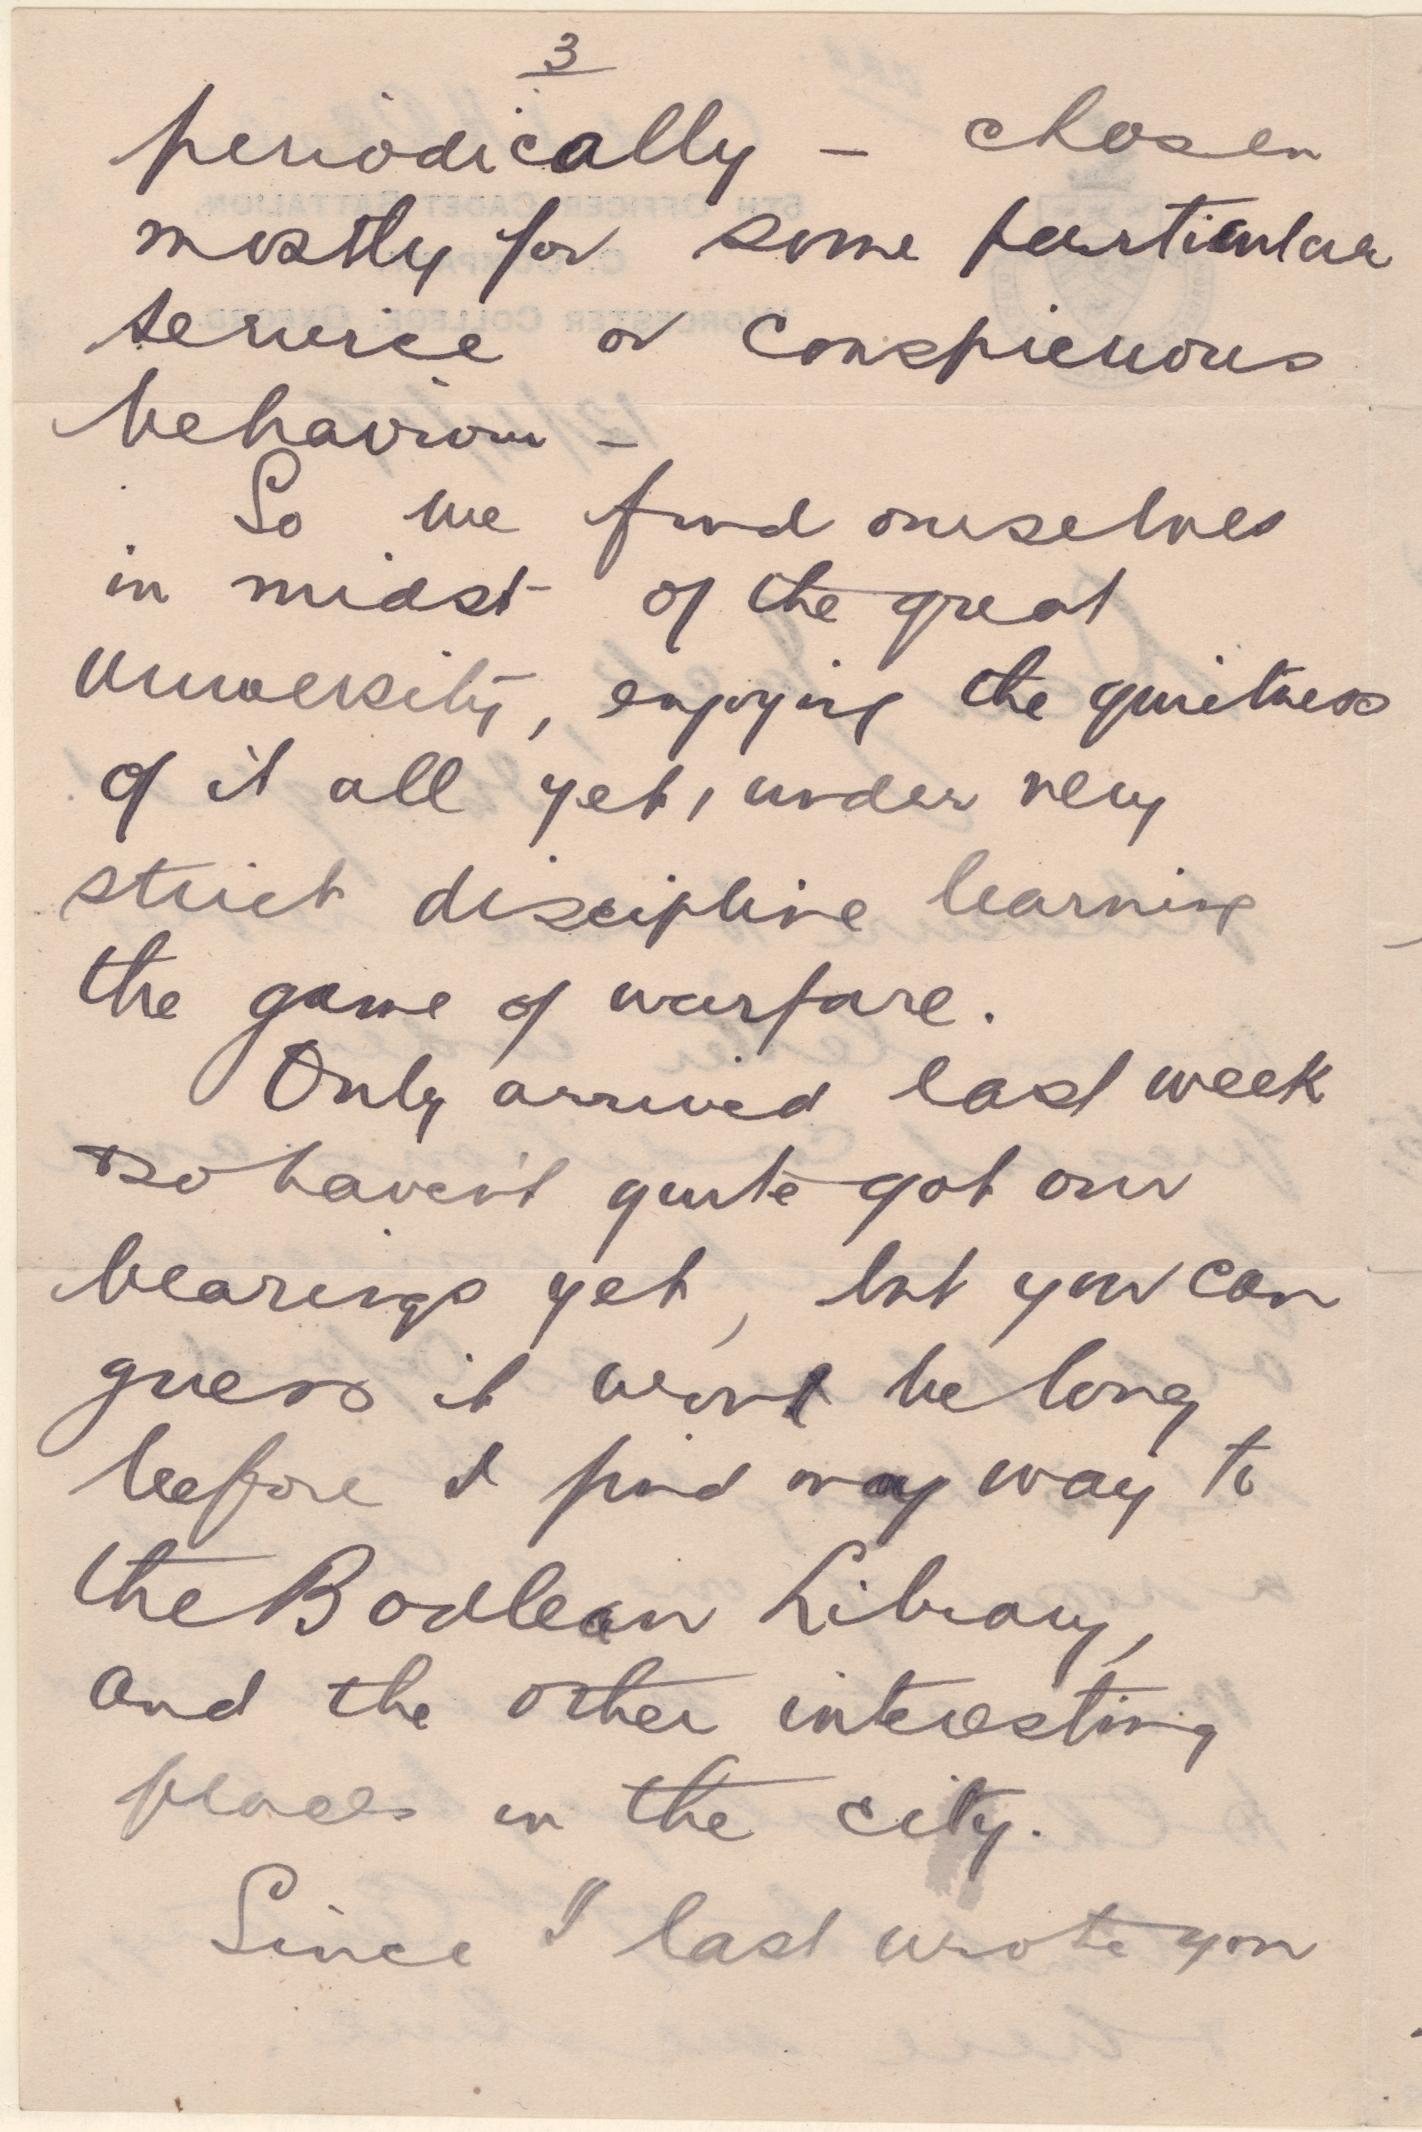 3
periodically – chosen
mostly for some particular
service or conspicuous
behaviour –
So we find ourselves
in midst of the great
University, enjoying the quietness
of it all yet, under very
strict discipline learning
the game of warfare.
Only arrived last week
so haven't quite got our
bearings yet, but you can
guess it wont be long
before I find my way to
the Bodlean Library,
and the other interesting
places in the city.
Since I last wrote you